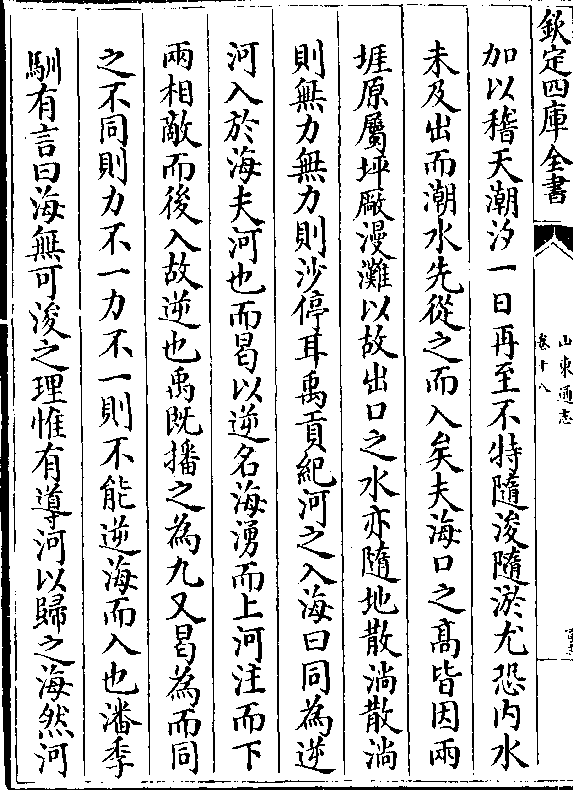 欽定四庫全書
山東通志
卷十八
加以稽天潮汐一日再至不特隨浚隨淤尤恐内水
未及出而潮水先從之而入矣夫海口之髙皆因兩
堐原屬坪厰漫灘以故出口之水亦隨地散淌散淌
則無力無力則沙停耳禹貢紀河之入海曰同為逆
河入於海夫河也而曷以逆名海湧而上河注而下
兩相敵而後入故逆也禹既播之為九又曷為而同
之不同則力不一力不一則不能逆海而入也潘季
馴有言曰海無可浚之理惟有導河以歸之海然河